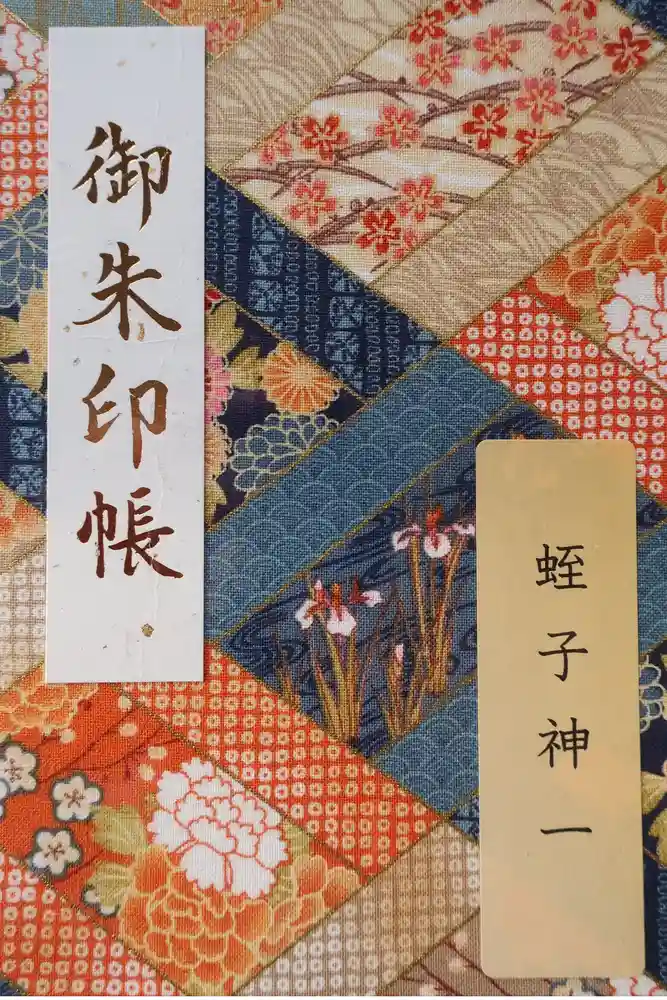 御朱印帳
蛭子神一